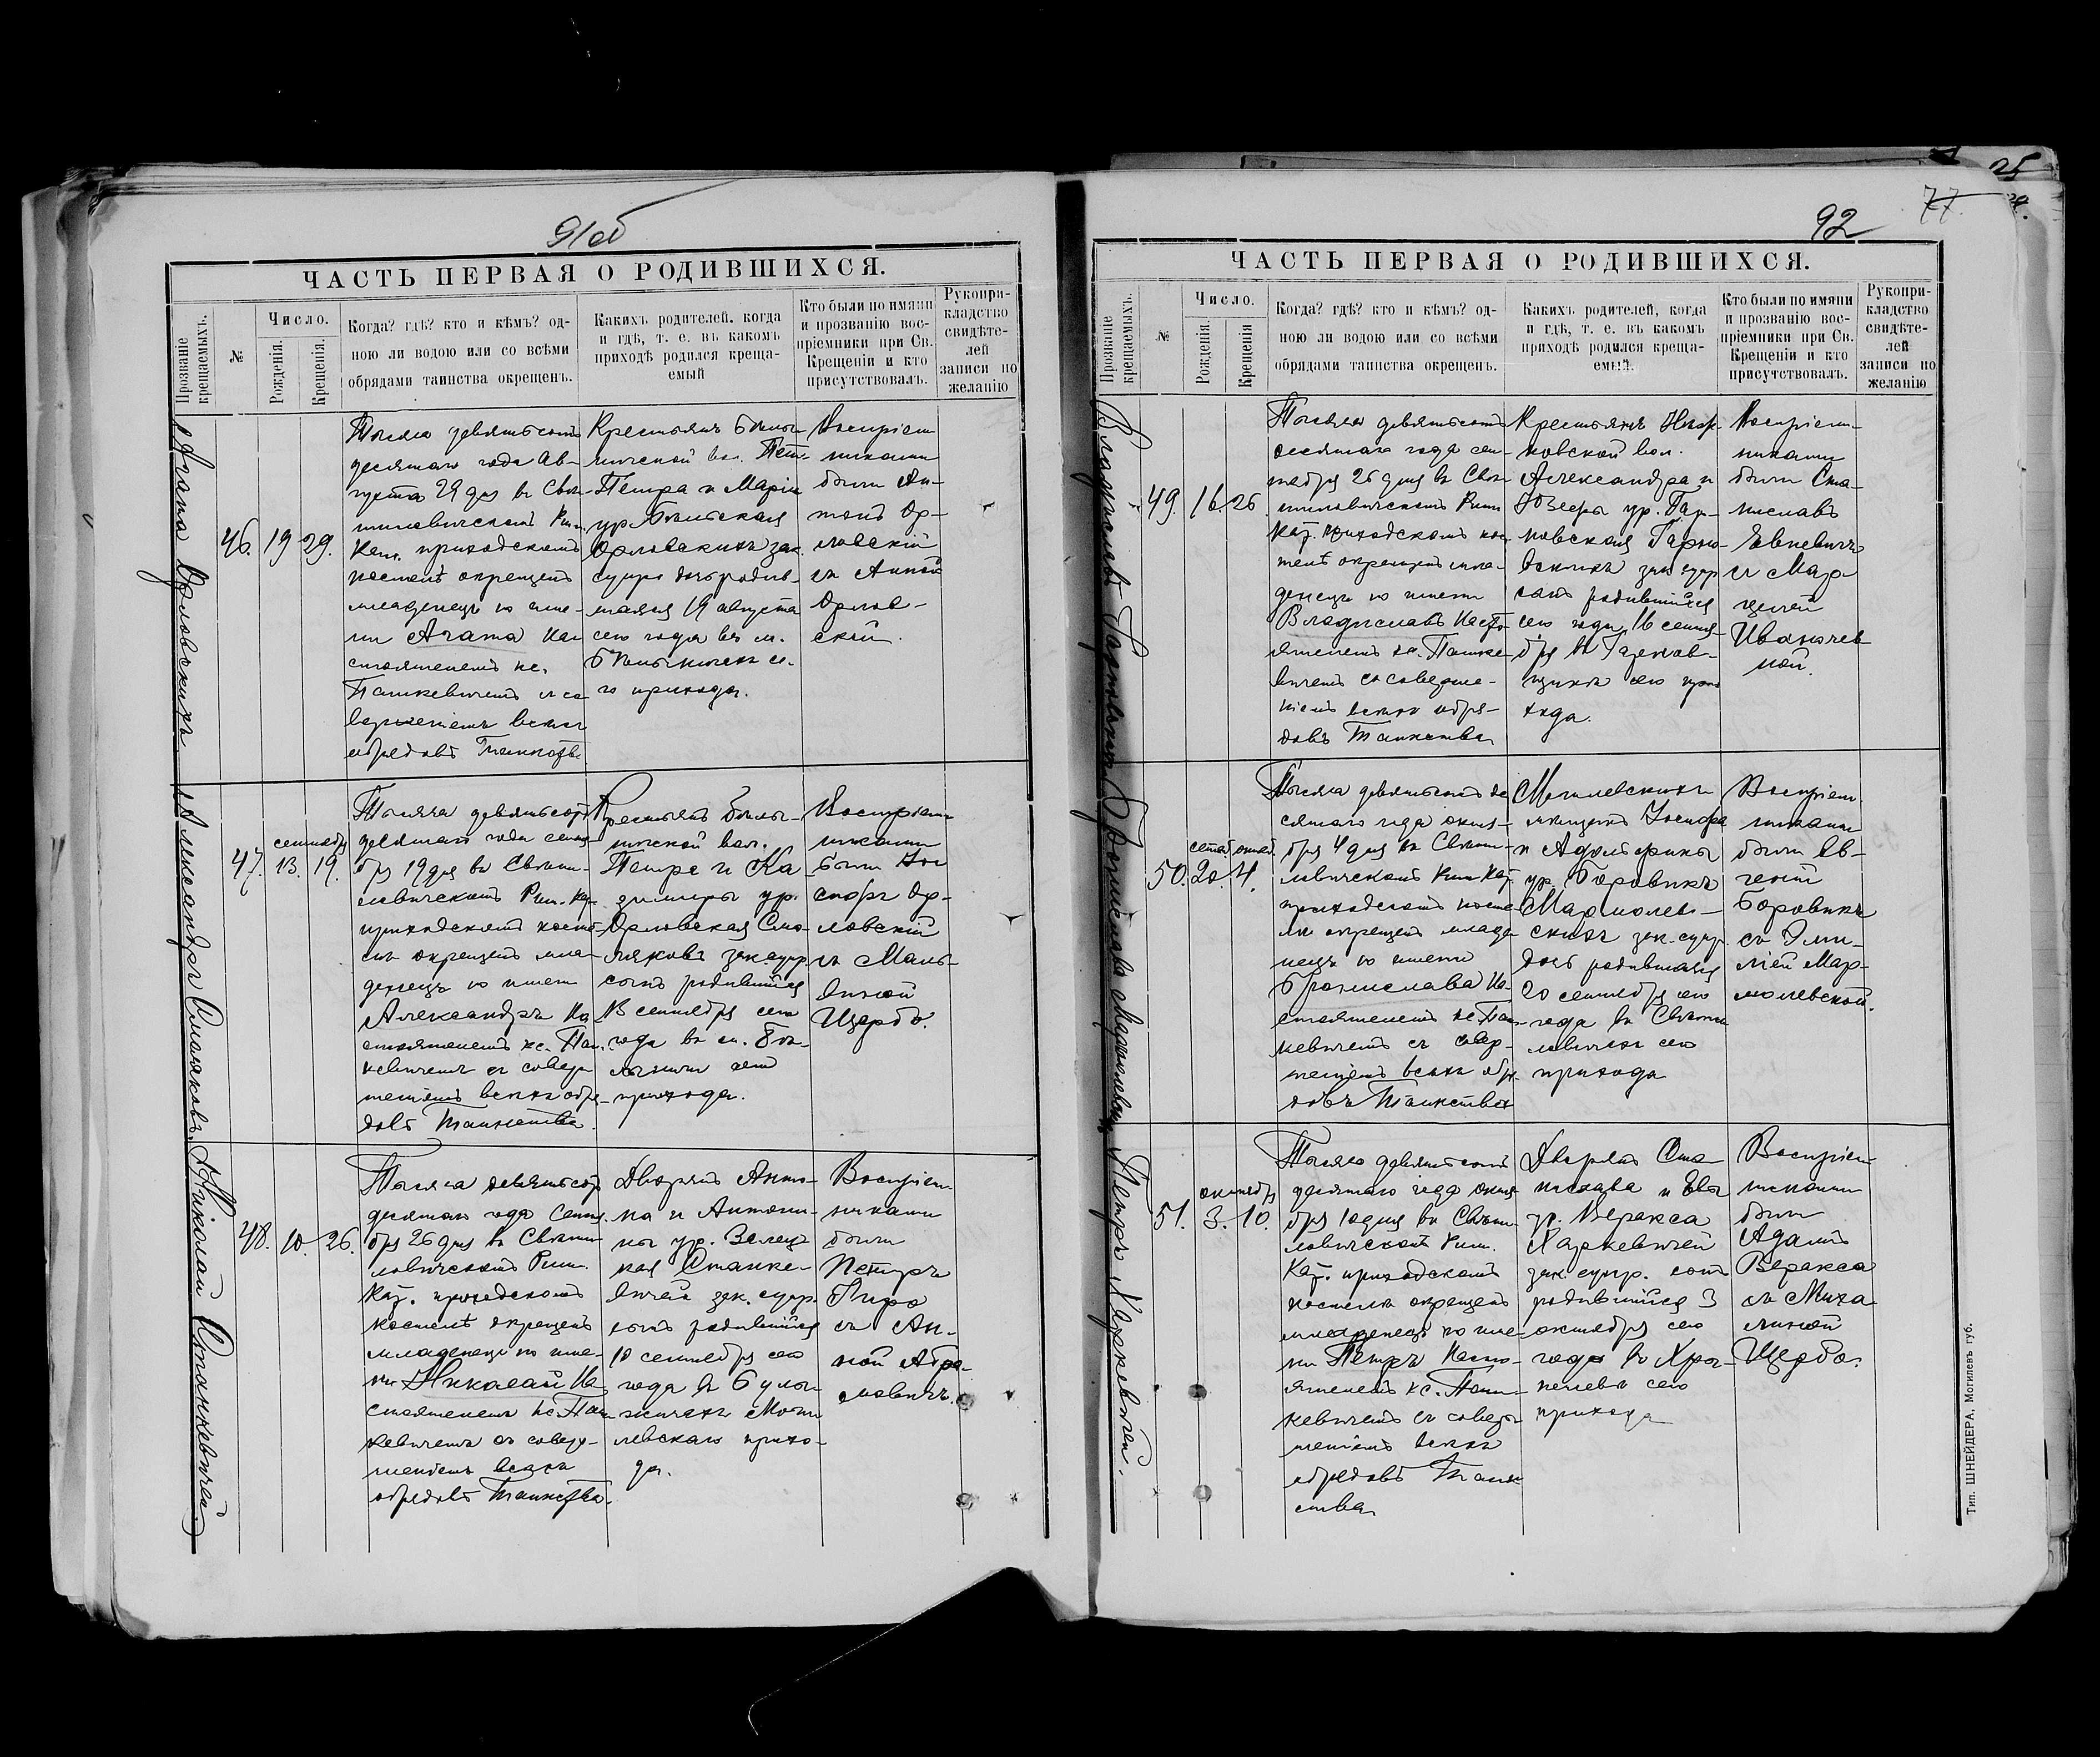 91об
ЧАСТЬ ПЕРВАЯ О РОДИВШИХСЯ.
Прозваніе крещаемыхъ.
№
Число.
Рожденія.
Крещенія.
Когда? гдѣ? кто и кѣмъ? од-
ною ли водою или со всѣми
обрядами таинства окрещенъ.
Какихъ родителей, когда
и гдѣ, т. е. въ какомъ
приходѣ родился креща-
емый
Кто были по имяни
и прозванію вос-
пріемники при Св.
Крещеніи и кто
присутствовалъ.
Рукопри-
кладство
свидѣте-
лей
записи по
желанію
Агата Орловскихъ
46.
19
29.
Тысяча девятьсотъ
десятаго года Ав-
густа 29 дня въ Свя-
тиловичскомъ Рим.
Кат. приходскомъ
костелѣ окрещенъ
младенецъ по име-
ни Агата На
стоятелемъ кс.
Пашкевичемъ съ со
вершеніемъ всѣхъ
обрядовъ Таинства
Крестьянъ Белы-
ничской вол.
Петра и Маріи
ур.
Орловскихъ зак.
супр. дочь родив-
шаяся 19 августа
сего года въ м.
Белыничахъ се-
го прихода.
Воспріем
никами
были Ан-
тонъ Ор-
ловскій
съ Анной
Орлов-
ской.
Александръ Смоляковъ
47.
сентябр
13.
19.
Тысяча девятьсотъ
десятаго года сентя
бря 19 дня въ Святи-
ловичскомъ Рим. Ка.
приходскомъ косте-
лѣ окрещенъ мла-
денецъ по имени
Александръ На
стоятелемъ кс. Паш.
кевичемъ съ совер
шеніемъ всѣхъ обря-
довъ Таинства.
Крестьянъ Белы-
ничской вол.
Петра и Ка
зимиры ур.
Орловская Смо-
ляковъ зак. супр.
сынъ родившійся
13 сентября сего
года въ м. Бе-
лыничи сего
прихода.
Воспріем
никами
были Іо
сифъ Ор-
ловскій
съ Маль-
виной
Щербо.
Николай Станкевичей
48.
10.
26.
Тысяча девятьсотъ
десятаго года Сентя.
бря 26 дня въ Святи
ловичскомъ Рим.
Кат. приходскомъ
костелѣ окрещенъ
младенецъ по име-
ни Николай На
стоятелемъ кс. Паш
кевичемъ съ совер-
шеніемъ всѣхъ
обрядовъ Таинства.
Дворянъ Анто-
на и Антони-
ны ур.
Станке-
вичей зак. супр.
сынъ родившійся
10 сентября сего
года въ
Моги
левскаго прихо-
да.
Воспріем
никами
были
Петръ
Пиро
съ Ан-
ной Абра
мовичъ.
25
77.
92
ЧАСТЬ ПЕРВАЯ О РОДИВШИХСЯ.
Прозваніе крещаемыхъ.
№
Число.
Рожденія.
Крещенія
Когда? гдѣ? кто и кѣмъ? од-
ною ли водою или со всѣми
обрядами таинства окрещенъ.
Какихъ родителей, когда
и гдѣ, т. е. въ какомъ
приходѣ родился креща-
емый.
Кто были по имяни
и прозванію вос-
пріемники при Св.
Крещеніи и кто
присутствовалъ.
Рукопри-
кладство
свидѣте-
лей
записи по
желанію
Владиславъ
49.
16
26
Тысяча девятьсотъ
десятаго года сен-
тября 26 дня въ Свя-
тиловичскомъ Рим
Кат. приходскомъ кос
телѣ окрещенъ мла-
денецъ по имени
Владиславъ Насто-
ятелемъ кс. Пашке
вичемъ съ соверше-
ніемъ всѣхъ обря-
довъ Таинства
Крестьянъ
вол.
Александра и
ур.
зак. супр
сынъ родившійся
сего года 16 сентя-
бря въ
сего при
хода.
Воспріем-
никами
были Ста-
ниславъ
съ Мар-
целей
Бронислава Мармолевскихъ
50.
сентяб
20.
октяб.
4.
Тысяча девятьсотъ де
сятаго года октя-
бря 4 дня въ Святи-
ловичскомъ Рим Кат.
приходскомъ косте
лѣ окрещенъ младе
нецъ по имени
Бронислава На-
стоятелемъ кс. Паш-
кевичемъ съ совер-
шеніемъ всѣхъ обря-
довъ Таинства
Могилевскихъ
мѣщанъ Іосифа
и Адольфины
ур. Боровикъ
Мармолев-
скихъ зак. супр.
дочь родившаяся
20 сентября сего
года въ Святи
ловичахъ сего
прихода
Воспріем.
никами
были Ев-
геній
Боровикъ
съ Эми-
ліей Мар-
молевской.
Петръ Харкевичей.
51.
октябр
3.
10.
Тысяча девятьсотъ
десятаго года октя
бря 10 дня въ Святи-
ловичскомъ Рим.
Кат. приходскомъ
костелѣ окрещенъ
младенецъ по име-
ни Петръ Насто-
ятелемъ кс. Паш-
кевичемъ съ совер
шеніемъ всѣхъ
обрядовъ Таин
ства
Дворянъ Ста
нислава и Евы
ур. Веракса
Харкевичей
зак. супр. сынъ
родившійся 3
октября сего
года въ
сего
прихода
Воспріем
никами
были
Адамъ
Веракса
съ Миха
линой
Щербо.
Тип. ШНЕЙДЕРА, Могилевъ губ.